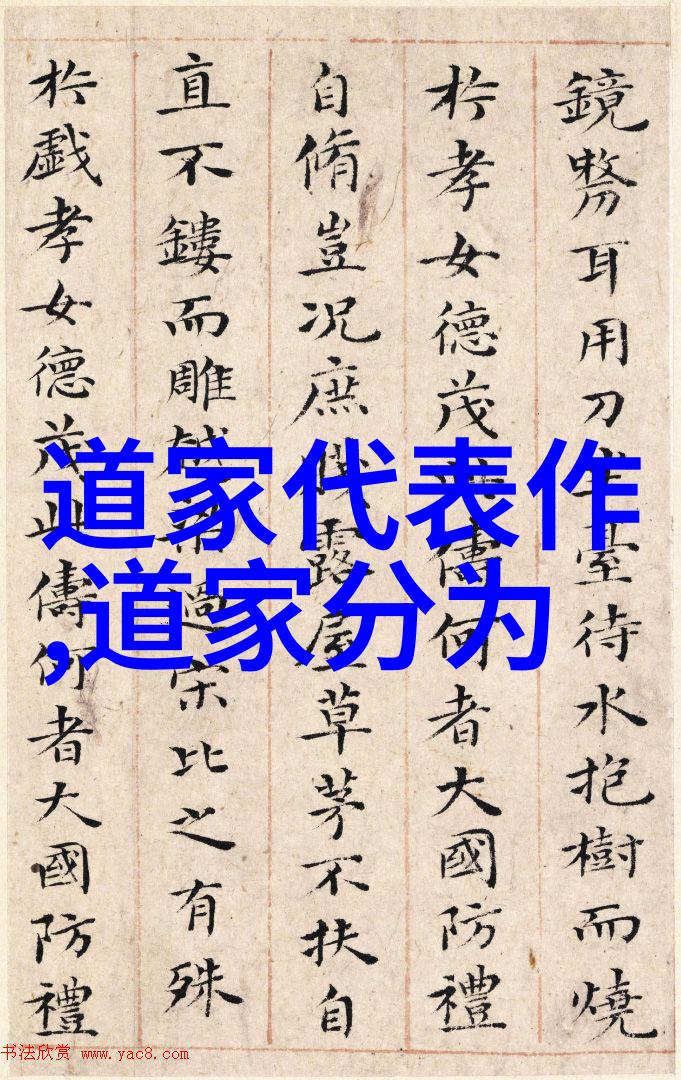 鏡剺耳用刀坐臺待水抱樹而燒
扵孝女德茂此儔何者大國防禮
自脩豈况庶賤露屋草茅不扶自
直不鏤而雕越梁過宋比之有殊
扵戲孝女德茂此儔何者大國防禮
道家代表作
,道家分为
书法欣赏 www.yac8.com